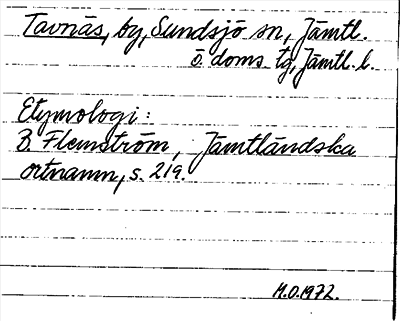 Tavnäs, by, Sundsjö sn, Jämtl.
ö. doms. tg, Jämtl. l.
Etymologi:
B. Flemström, Jämtländska
ortnamn, s. 219.
M.O. 1972.